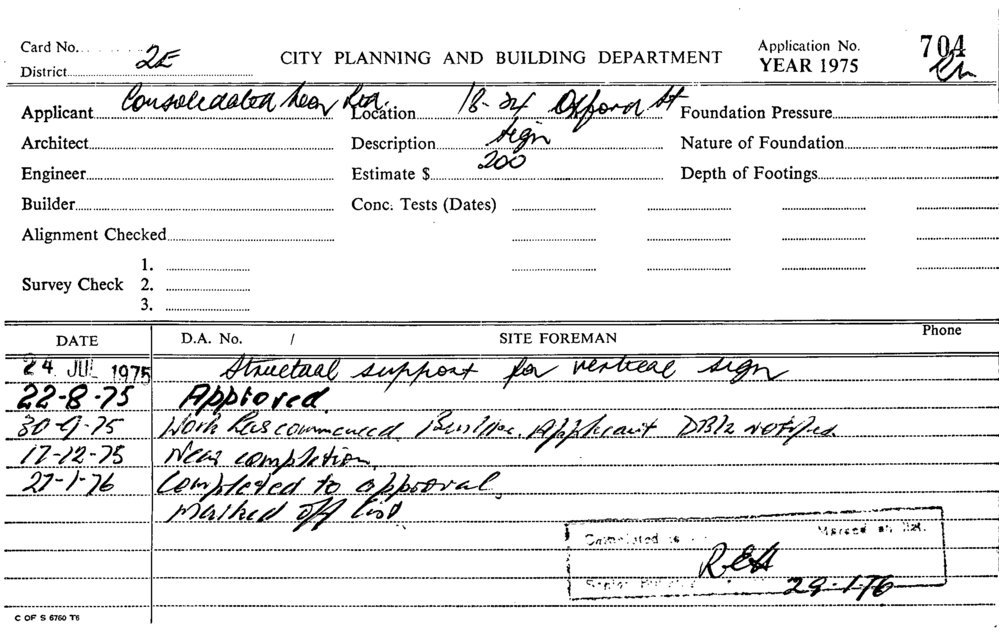 Card No.
District 2E
CITY PLANNING AND BUILDING DEPARTMENT
Application No. 704
YEAR 1975
Applicant Consolidated Neon Location 18-24 Oxford St Foundation Pressure
Architect Description sign Nature of Foundation
Engineer Estimate $ 200 Depth of Footings
Builder Conc. Tests (Dates)
Alignment Checked
1.
Survey Check 2.
3.
DATE D.A. No. / SITE FOREMAN Phone
24 JUL 1975 Structual support for vertical sign
22-8-75 Approved.
30-9-75 Work has commenced. Applicant notified
17-12-75 Near completion.
27-1-76 Completed to approval.
marked off list
Completed to
29-1-76
C OF S 6760 T6